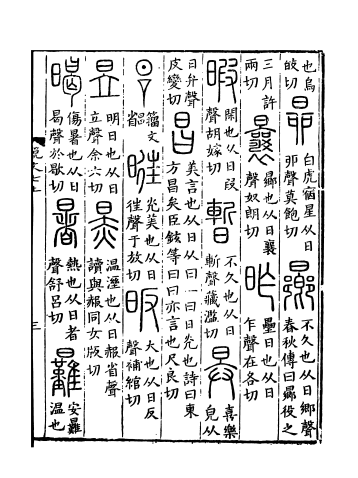 也烏
皎切
昴
白虎宿星从日
卯聲莫飽切
曏
不久也从日鄉聲
春秋傳曰曏役之
三月許
兩切
曩
曏也从日襄
聲奴朗切
昨
壘日也从日
乍聲在各切
暇
閑也从日叚
聲胡嫁切
暫
不久也从日
斬聲藏濫切
昪
喜樂
皃从
日弁聲
皮變切
昌
美言也从日从曰一曰日光也詩曰東
方昌矣臣鉉等曰曰亦言也尺良切
籀文
昌
暀
光美也从日
往聲于放切
昄
大也从日反
聲補綰切
昱
明日也从日
立聲余六切
温溼也从日赧省聲
讀與赧同女版切
暍
傷暑也从日
曷聲於歇切
暑
熱也从日者
聲舒呂切
㬮
安㬮
温也
說文七上
三